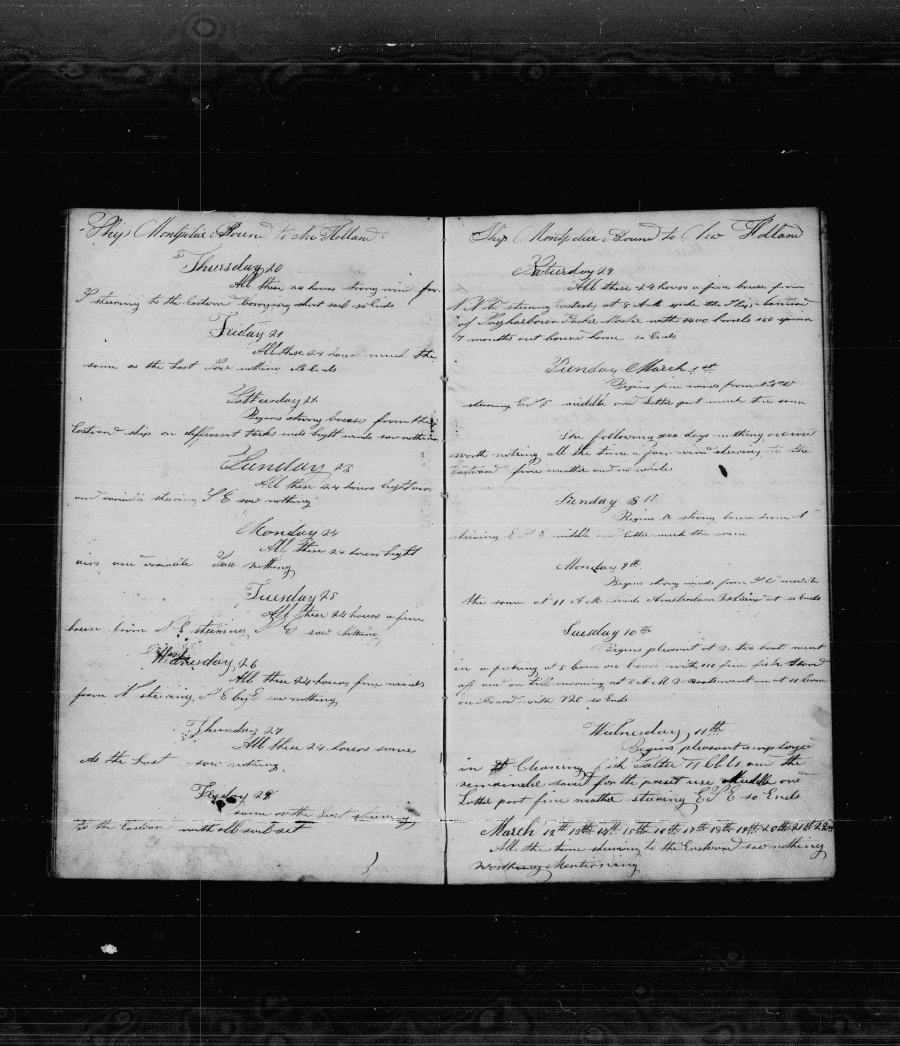 Ship Montpelier Bound to New Holland
Thursday 20
All these 24 hours strong wind from
S steering to the Eastward Carrying short sail so Ends
Friday 21
All these 24 hours much the
same as the Last Saw nothing So Ends
Satturday 22
Begins strong breeze from the
Eastward ship on different Tacks ends light winds saw nothing
Sunday 23
All these 24 hours light airs
and variable stearing S E saw nothing
Monday 24
All these 24 hours light
airs and variable Saw nothing
Tuesday 25
All these 24 hours a fine
breeze from N E steering S E saw nothing
Wednesday 26
All these 24 hours fine winds
from N steering S E by E saw nothing
Thursday 27
All these 24 hours same
As the Last saw nothing
Friday 28
same as the Last steering
to the Eastward with all sail set
Ship Montpelier Bound to New Holland
Satturday 29
All these 24 hours a fine breeze from
N N W steering Easterly at 8 A M spoke the Ship
of Sagharbour with 1400 barels 160 sperm
7 months out bound home so Ends
Sunday March 1st
Begins fine winds from
steering E S E middle and Latter part much the same
The following six days nothing occured
worth noting all the time a fair wind steering to the
Eastward fine weather and no whale
Sunday 8th
Begins a strong breeze from N
steering E S E middle and Latter much the same
Monday 9th
Begins strong winds from S W middle
the same at 11 A M made Amsterdam Island so Ends
Tuesday 10th
Begins pleasant at 2 two boats went
in a fishing at 5 came on board with 110 fine fish Stood
off and on till morning at 8 A M 3 boats went in at 11 came
on Board with 720 so Ends
Wednesday 11th
Begins pleasant employed
in Cleaning fish Salted 11 bbls and the
remainder saved for the present use Middle and
Latter part fine weather steering E S E so Ends
March 12th 13th 14th 15th 16th 17th 18th 19th 20th 21st 22nd
All the time steering to the Eastward saw nothing
worthing Mentioning